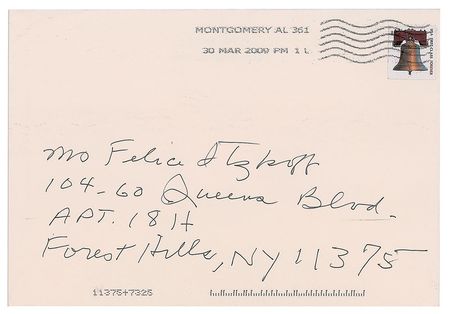 MONTGOMERY AL 361
30 MAR 2009 PM 1 L
Ms Felice Itzkoff
104-60 Queens Blvd.
APT. 18H
Forest Hills, NY 11375
11375+7325